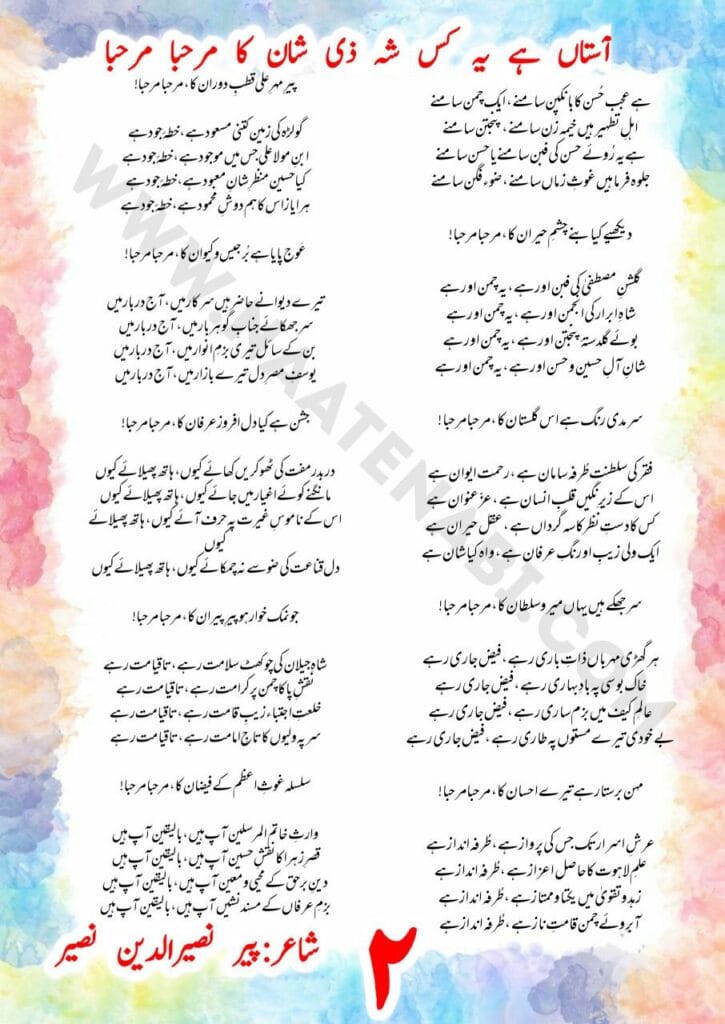 آستاں ہے یہ کس شہ ذی شان کا مرحبا مرحبا
ہے عجب حُسن کا بانکپن سامنے، ایک چمن سامنے
اہلِ تطہیر ہیں خیمہ زن سامنے، پنجتن سامنے
ہے یہ رُوئے حسن کی فبن سامنے یا حسن سامنے
جلوہ فرما ہیں غوثِ زماں سامنے، ضوء فگن سامنے
دیکھیے کیا بنے چشمِ حیران کا، مرحبا مرحبا!
گلشنِ مصطفیٰ کی فبن اور ہے، یہ چمن اور ہے
شاہِ ابرار کی انجمن اور ہے، یہ چمن اور ہے
بوئے گلدستۂ پنجتن اور ہے، یہ چمن اور ہے
شانِ آلِ حسین و حسن اور ہے، یہ چمن اور ہے
سرمدی رنگ ہے اس گلستان کا، مرحبا مرحبا!
فقر کی سلطنت طُرفہ سامان ہے، رحمت ایوان ہے
اس کے زیرِ نگیں قلبِ انسان ہے، عزّ عنوان ہے
کس کا دستِ نظر کاسہ گرداں ہے، عقل حیران ہے
ایک ولی زیبِ اورنگِ عرفان ہے، واہ کیا شان ہے
سر جھکے ہیں یہاں میر و سلطان کا، مرحبا مرحبا!
ہر گھڑی مہرباں ذاتِ باری رہے، فیض جاری رہے
خاک بوسی پہ بادِ بہاری رہے، فیض جاری رہے
عالمِ کیف میں بزم ساری رہے، فیض جاری رہے
بے خودی تیرے مستوں پہ طاری رہے، فیض جاری رہے
مہن برستا رہے تیرے احسان کا، مرحبا مرحبا!
عرشِ اسرار تک جس کی پرواز ہے، طُرفہ انداز ہے
علمِ لاہوت کا حاصل اعزاز ہے، طُرفہ انداز ہے
زہد و تقویٰ میں یکتا و ممتاز ہے، طُرفہ انداز ہے
آبروئے چمن قامتِ ناز ہے، طُرفہ انداز ہے
پیر مہرِ علی قطبِ دوران کا، مرحبا مرحبا!
گولڑہ کی زمین کتنی مسعود ہے، خطۂ جود ہے
ابنِ مولا علی جس میں موجود ہے، خطۂ جود ہے
کیا حسین منظرِ شانِ معبود ہے، خطۂ جود ہے
ہر ایاز اس کا ہم دوشِ محمود ہے، خطۂ جود ہے
عوج پایا ہے بُرجیس و کیوان کا، مرحبا مرحبا!
تیرے دیوانے حاضر ہیں سرکار میں، آج دربار میں
سر جھکائے جنابِ گوہر بار میں، آج دربار میں
بن کے سائل تیری بزمِ انوار میں، آج دربار میں
یوسفِ مصرِ دل تیرے بازار میں، آج دربار میں
جشن ہے کیا دل افروز عرفان کا، مرحبا مرحبا!
در بدر مفت کی ٹھوکریں کھائے کیوں، ہاتھ پھیلائے کیوں
مانگنے کوئے اغیار میں جائے کیوں، ہاتھ پھیلائے کیوں
اس کے ناموسِ غیرت پہ حرف آئے کیوں، ہاتھ پھیلائے
کیوں
دل قناعت کی ضو سے نہ چمکائے کیوں، ہاتھ پھیلائے کیوں
جو نمک خوار ہو پیرِ پیران کا، مرحبا مرحبا!
شاہِ جیلان کی چوکھٹ سلامت رہے، تا قیامت رہے
نقشِ پا کا چمن پر کرامت رہے، تا قیامت رہے
خلعتِ اجتباء زیبِ قامت رہے، تا قیامت رہے
سر پہ ولیوں کا تاجِ امامت رہے، تا قیامت رہے
سلسلہ غوثِ اعظم کے فیضان کا، مرحبا مرحبا!
وارثِ خاتم المرسلین آپ ہیں، بالیقین آپ ہیں
قصرِ زہرا کا نقشِ حسین آپ ہیں، بالیقین آپ ہیں
دینِ برحق کے محی و معین آپ ہیں، بالیقین آپ ہیں
بزمِ عرفاں کے مسند نشیں آپ ہیں، بالیقین آپ ہیں
شاعر: پیر نصیر الدین نصیر
۲